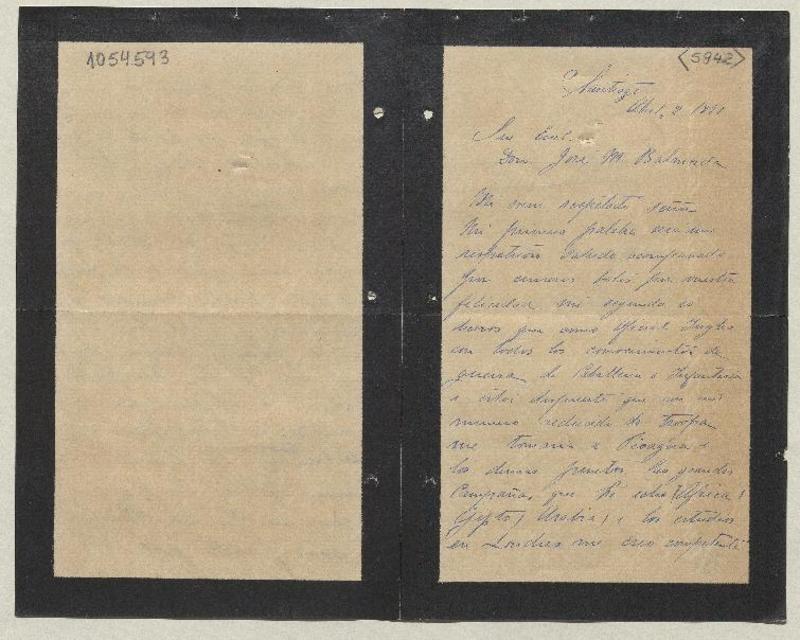 1054593
(5942)
Santiago
Abril 2 1891
Su Excel.
Don José M. Balmaceda
Mi mui respetado señor
Mi primera palabra será un
respetuoso saludo acompañado
por sinceros por vuestra
felicidad, mi segunda es
deciros que como Oficial Ingles
con todos los conocimientos de
guerra de Caballeria e Infanteria
i estoi dispuesto que con un
numero reducido de tropa
me tomaria a Pisagua i
los demas puertos. Las grandes
Campañas que he echo (Africa)
Egipto / Arabia / i los estudios
en Londres me creo competente